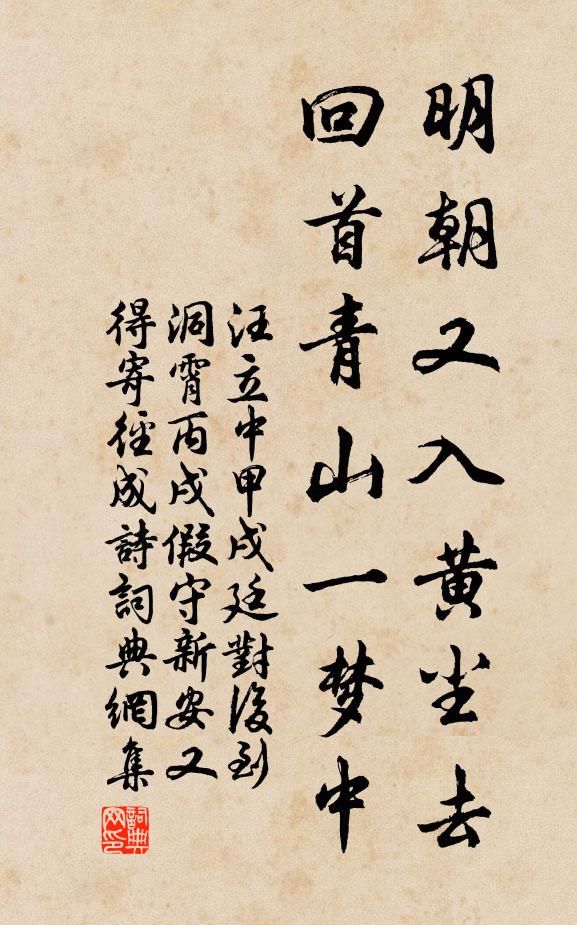 明朝又入黄尘去
回首青山一梦中
汪立中甲戌廷對後到
洞霄丙戌假守新安又
得寄徑成詩詞典網集
詞典
网印